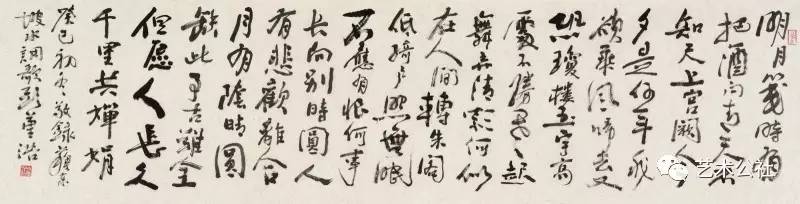 明月幾時有
把酒问青天不
知天上宫闕今
夕是何年我
欲乘風歸去又
恐瓊楼玉宇高
處不勝寒起
舞弄清影何似
在人间轉朱阁
低綺户照無眠
不應有恨何事
长向别時圓人
有悲歡離合
月有陰晴圓
缺此事古難全
但愿人長久
千里共嬋娟
癸巳初敬録蘇東
坡水調歌彭浩
艺术公社